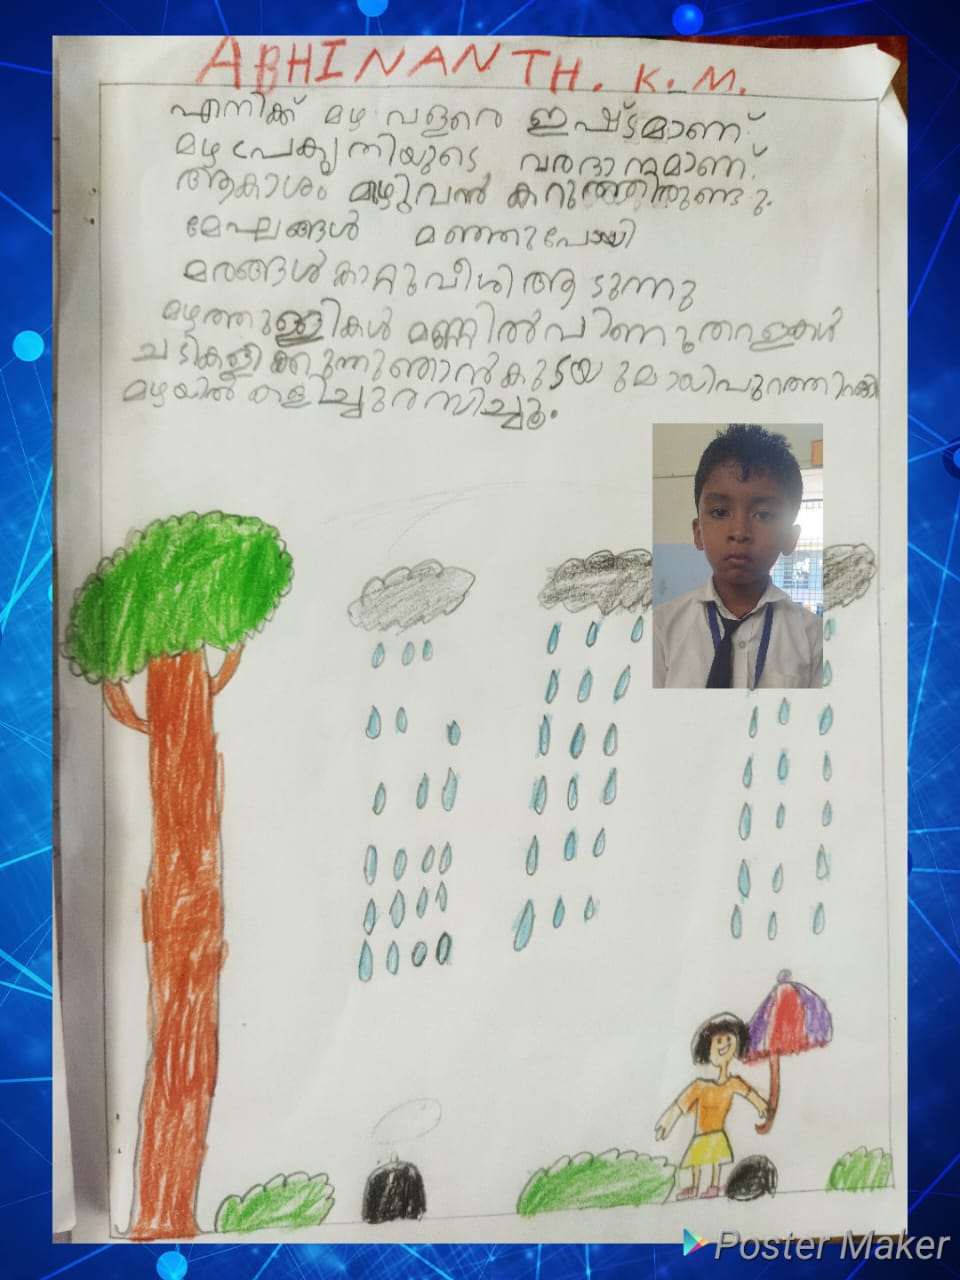 ABHINANTH. K. M.
എനിക്ക് മഴ വളരെ ഇഷ്ടമാണ്.
മഴ പ്രകൃതിയുടെ വരദാനമാണ്.
ആകാശം മുഴുവൻ കറുത്തിരുണ്ടു.
മേഘങ്ങൾ മഞ്ഞുപോയി
മരങ്ങൾ കാറ്റുവീശി ആടുന്നു
മഴത്തുള്ളികൾ മണ്ണിൽ വീണു
ചടികളിക്കുന്നു ഞാൻ കുടയുമായി പുറത്തിറങ്ങി
മഴയിൽ കളിച്ചു രസിച്ചു.
Poster Maker